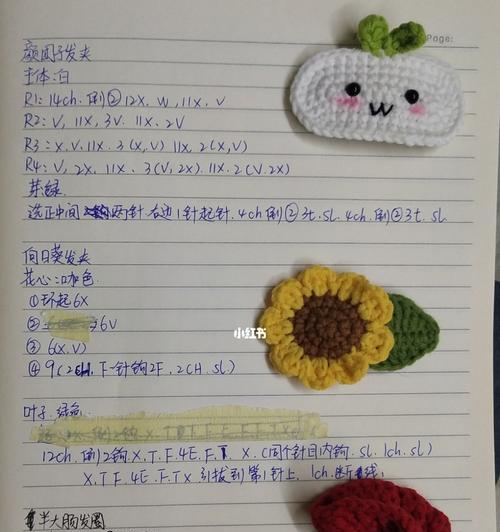 Page:
颜团子发夹
主体:白
R1: 14ch. 倒② 12X. W, 11X. V
R2: V, 11X, 3V. 11X. 2V
R3: X.V. 11X. 3(X,V) 11X, 2(X,V)
R4: V, 2X. 11X. 3(V, 2X). 11X. 2(V.2X)
芽:绿.
选正中间 两针 右边1针起针. 4ch 倒② 3t. sl. 4ch. 倒② 3t. sl.
向日葵发夹
花心:咖色.
① 环起 6X
② 6V
③ 6(X.V)
④ 9(2ch. 下一针钩2F, 2CH. sl)
小红书
叶子. 绿色.
12ch. 倒2钩. X. T. F. 4E. F. T. X. (同个针目内钩. sl. 1ch. sl)
X. T F. 4E. F. T X 引拔到第1针上, 1ch. 断线.
半大肠发圈